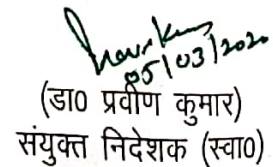 05/03/2020
(डा0 प्रवीण कुमार)
संयुक्त निदेशक (स्वा0)